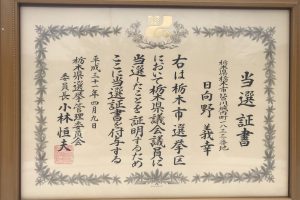 当選証書
日向野義幸
右は栃木市選挙区
において栃木県議会議員に
当選したことを証明するため
ここに当選証書を付与する
平成三十一年四月九日
栃木県選挙管理委員会
委員長 小林恒夫